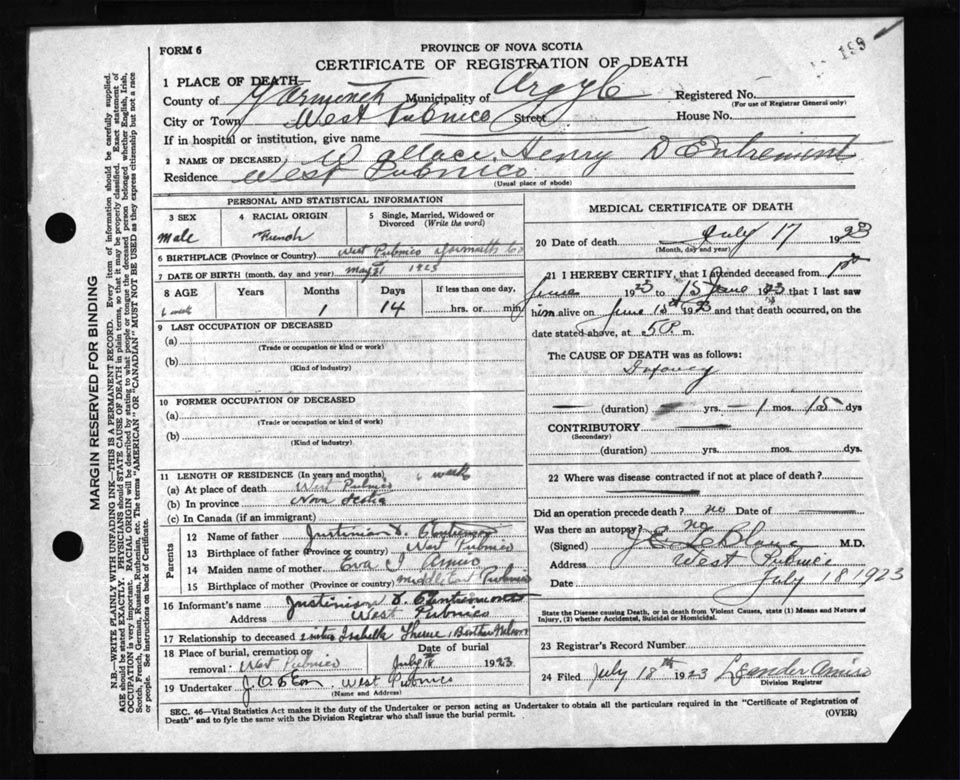 199
FORM 6
PROVINCE OF NOVA SCOTIA
CERTIFICATE OF REGISTRATION OF DEATH
1 PLACE OF DEATH—
County of Yarmouth Municipality of Argyle Registered No.
(For use of Registrar General only)
City or Town West Pubnico Street House No.
If in hospital or institution, give name
2 NAME OF DECEASED, Wallace Henry D Entremont
Residence West Pubnico
(Usual place of abode)
PERSONAL AND STATISTICAL INFORMATION
3 SEX
Male
4 RACIAL ORIGIN
French
5 Single, Married, Widowed or Divorced (Write the word)
6 BIRTHPLACE (Province or Country) West Pubnico Yarmouth Co
7 DATE OF BIRTH (month, day and year) May 31 1923
8 AGE Years Months Days If less than one day,
6 week 1 14 hrs. or min
9 LAST OCCUPATION OF DECEASED
(a)
(Trade or occupation or kind or work)
(b)
(Kind of industry)
10 FORMER OCCUPATION OF DECEASED
(a)
(Trade or occupation or kind of work)
(b)
(Kind of industry)
11 LENGTH OF RESIDENCE (In years and months) 6 weeks
(a) At place of death West Pubnico
(b) In province Nova Scotia
(c) In Canada (if an immigrant)
Parents
12 Name of father Justinian D.
13 Birthplace of father (Province or country) West Pubnico
14 Maiden name of mother Eva
15 Birthplace of mother (Province or country) Middle East Pubnico
16 Informant's name D.
Address West Pubnico
17 Relationship to deceased Isabelle
18 Place of burial, cremation or removal: West Pubnico
Date of burial
July 18 1923
19 Undertaker West Pubnico
(Name and Address)
MEDICAL CERTIFICATE OF DEATH
20 Date of death July 17 1923
(Month, day and year)
21 I HEREBY CERTIFY, that I attended deceased from
June 1923 to 15 June 1923 that I last saw
him alive on June 15th 1923 and that death occurred, on
date stated above, at 5 P. m.
The CAUSE OF DEATH was as follows:
Infancy
(duration) yrs. 1 mos. 15 dys
CONTRIBUTORY
(Secondary)
(duration) yrs. mos. dys.
22 Where was disease contracted if not at place of death?
Did an operation precede death? no Date of
Was there an autopsy? no
(Signed) J E LeBlanc M.D.
Address West Pubnico
Date July 18 1923
State the Disease causing Death, or in death from Violent Causes, state (1) Means and Nature of Injury, (2) whether Accidental, Suicidal or Homicidal.
23 Registrar's Record Number
24 Filed July 18th 1923 Leander Amiro
Division Registrar
SEC. 46—Vital Statistics Act makes it the duty of the Undertaker or person acting as Undertaker to obtain all the particulars required in the "Certificate of Registration of
Death" and to fyle the same with the Division Registrar who shall issue the burial permit.
(OVER)
MARGIN RESERVED FOR BINDING
N.B.—WRITE PLAINLY WITH UNFADING INK—THIS IS A PERMANENT RECORD. Every item of information should be carefully supplied.
AGE should be stated EXACTLY. PHYSICIANS should STATE CAUSE OF DEATH in plain terms, so that it may be properly classified. Exact statement of
OCCUPATION is very important. RACIAL ORIGIN will be described by stating to what people or tongue the deceased person belonged, whether English, Irish,
Scotch, French, German, Russian, Ruthenian, etc. The terms "AMERICAN" OR "CANADIAN" MUST NOT BE USED as they express citizenship but not a race
or people. See instructions on back of Certificate.